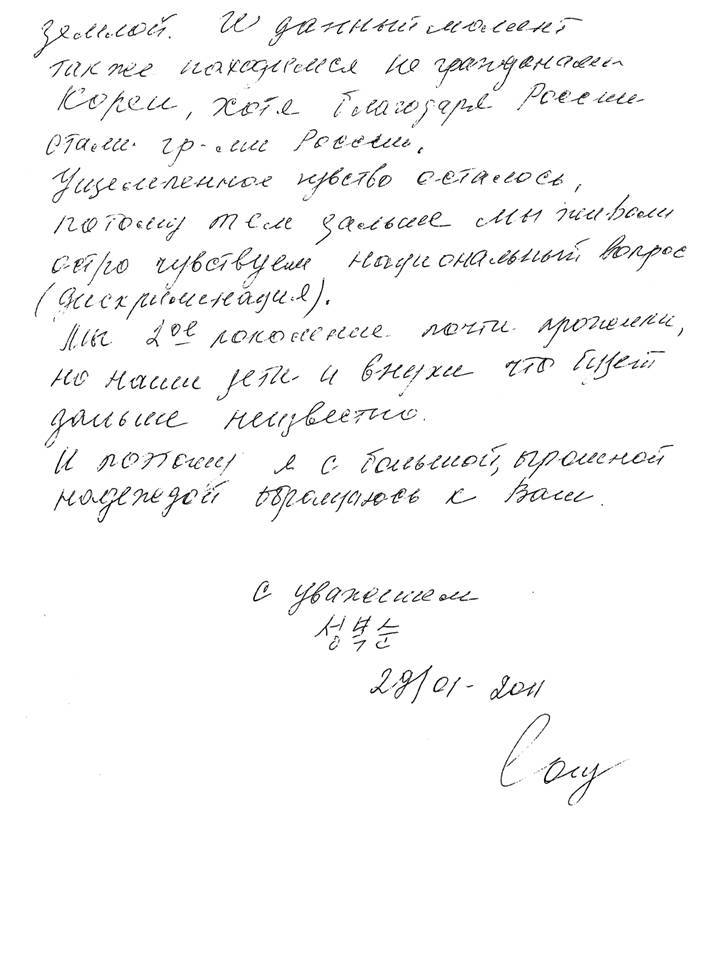 землой. И в данный момент
также находимся не гражданами
Кореи, хотя благодаря России
стали гр-ми России.
Ущемленное чувство осталось,
потому чем дальше мы живём
остро чувствуем национальный вопрос
(дискрименация).
Мы 2ое поколение почти прожили,
но наши дети и внуки что будет
дальше неизвестно.
И поэтому я с большой, огромной
надеждой обращаюсь к Вам.
С уважением
성복순
29/01-2011